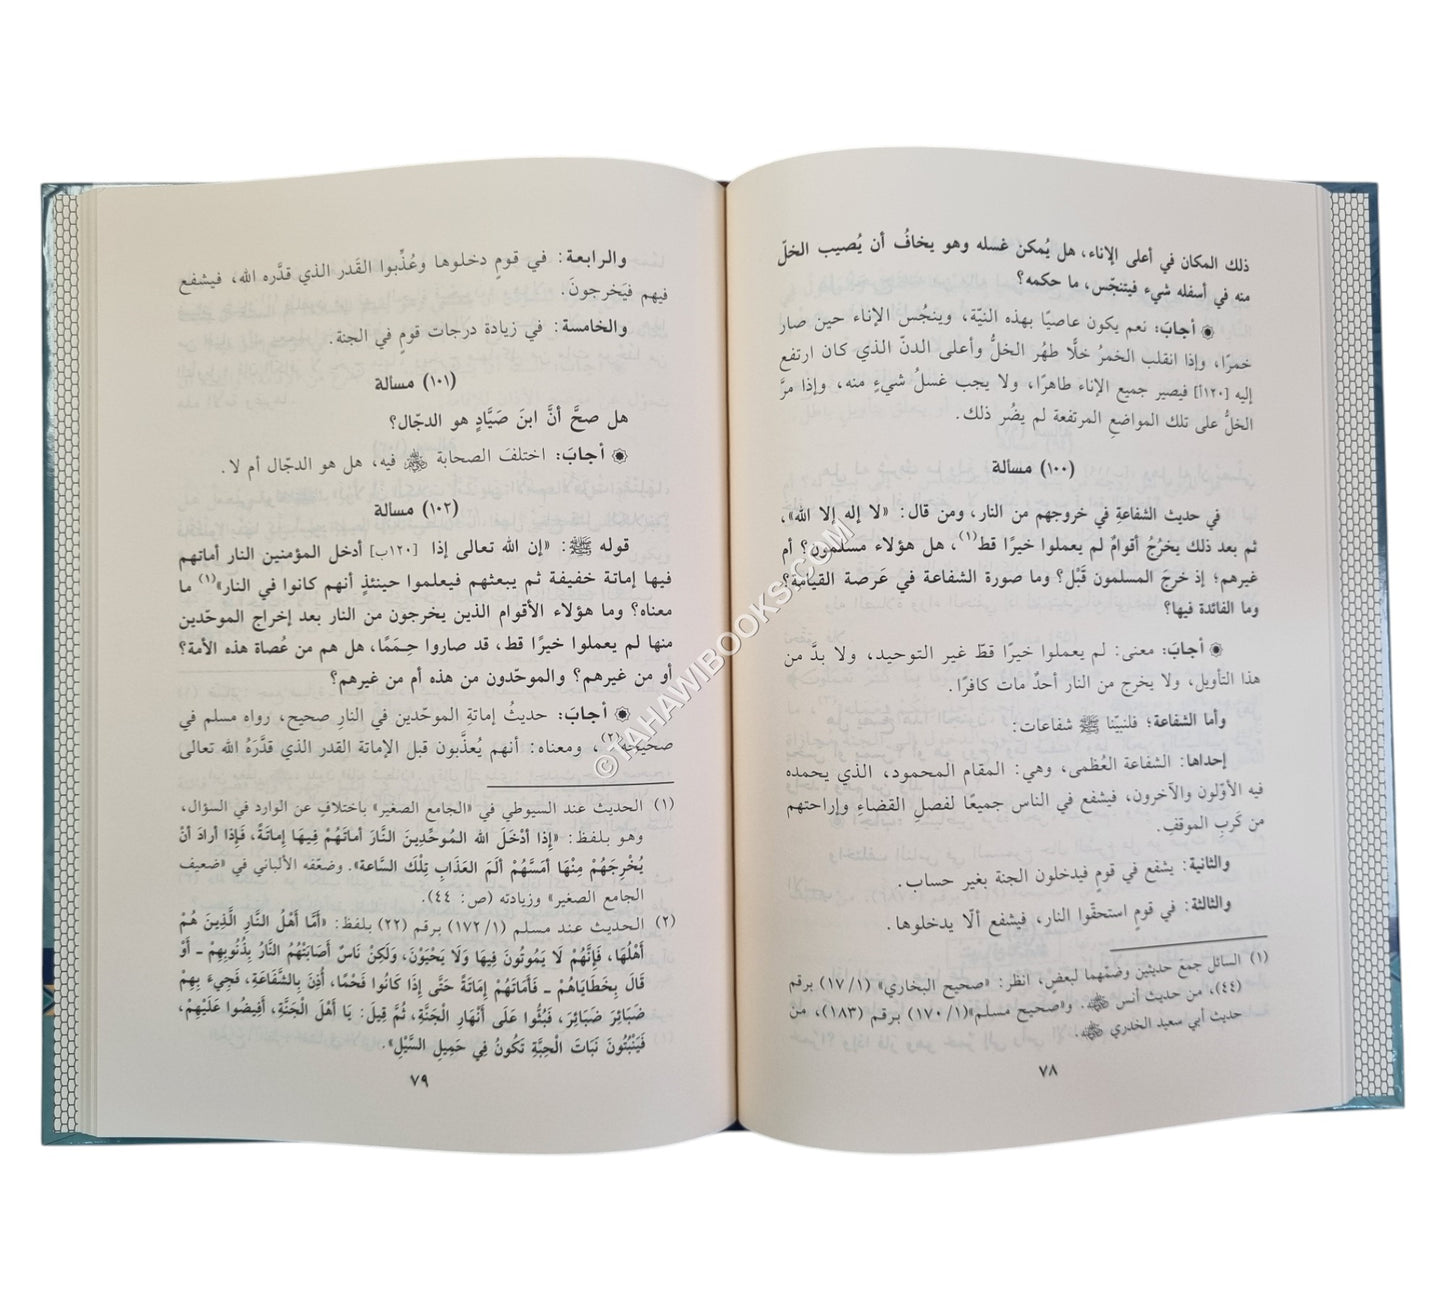 ذلك المكان في أعلى الإناء، هل يُمكن غسله وهو يخافُ أن يُصيب الخلّ
منه في أسفله شيء فيتنجّس، ما حكمه؟
۞ أجابَ: نعم يكون عاصيًا بهذه النيّة، وينجُس الإناء حين صار
خمرًا، وإذا انقلب الخمرُ خلًّا طهُر الخلُّ وأعلى الدنّ الذي كان ارتفع
إليه [١٢٠أ] فيصير جميع الإناء طاهرًا، ولا يجب غسلُ شيءٍ منه، وإذا مرَّ
الخلُّ على تلك المواضع المرتفعة لم يضُر ذلك.
(١٠٠) مسألة
في حديث الشفاعةِ في خروجهم من النار، ومن قال: «لا إله إلا الله»،
ثم بعد ذلك يخرُجُ أقوامٌ لم يعملوا خيرًا قط(١)، هل هؤلاء مسلمون؟ أم
غيرهم؛ إذ خرجَ المسلمون قَبْل؟ وما صورة الشفاعة في عَرصة القيامة؟
وما الفائدة فيها؟
۞ أجابَ: معنى: لم يعملوا خيرًا قطّ غير التوحيد، ولا بدَّ من
هذا التأويل، ولا يخرج من النار أحدٌ مات كافرًا.
وأما الشفاعة؛ فلنبيّنا ﷺ شفاعات:
إحداها: الشفاعة العُظمى، وهي: المقام المحمود، الذي يحمده
فيه الأوّلون والآخرون، فيشفع في الناس جميعًا لفصلِ القضاءِ وإراحتهم
من كَربِ الموقفِ.
والثانية: يشفع في قومٍ فيدخلون الجنة بغير حساب.
والثالثة: في قومٍ استحقّوا النار، فيشفع ألّا يدخلوها.
(١) السائل جمع حديثين وضمّهما لبعضٍ، انظر: «صحيح البخاري» (١/ ١٧) برقم
(٤٤)، من حديث أنس رضي الله عنه. و«صحيح مسلم»(١/ ١٧٠) برقم (١٨٣)، من
حديث أبي سعيد الخدري رضي الله عنه.
٧٨
والرابعة: في قومٍ دخلوها وعُذِّبوا القَدر الذي قدَّره الله، فيشفع
فيهم فيَخرجونَ.
والخامسة: في زيادة درجات قومٍ في الجنة.
(١٠١) مسالة
هل صحَّ أنَّ ابنَ صَيَّادٍ هو الدجّال؟
۞ أجابَ: اختلفَ الصحابة رضي الله عنهم فيه، هل هو الدجّال أم لا.
(١٠٢) مسالة
قوله ﷺ: «إن الله تعالى إذا [١٢٠ب] أدخل المؤمنين النار أماتهم
فيها إماتة خفيفة ثم يبعثهم فيعلموا حينئذٍ أنهم كانوا في النار»(١) ما
معناه؟ وما هؤلاء الأقوام الذين يخرجون من النار بعد إخراج الموحّدين
منها لم يعملوا خيرًا قط، قد صاروا حِمَمًا، هل هم من عُصاة هذه الأمة؟
أو من غيرهم؟ والموحّدون من هذه أم من غيرهم؟
۞ أجابَ: حديثُ إماتةِ الموحّدين في النارِ صحيح، رواه مسلم في
صحيحه(٢)، ومعناه: أنهم يُعذَّبون قبل الإماتة القدر الذي قدَّرَهُ الله تعالى
(١) الحديث عند السيوطي في «الجامع الصغير» باختلافٍ عن الوارد في السؤال،
وهو بلفظ: «إِذا أدْخَلَ الله المُوحِّدِينَ النَّارَ أماتَهُمْ فِيهَا إماتَةً، فَإِذا أرادَ أنْ
يُخْرِجَهُمْ مِنْهَا أمَسَّهُمْ ألَمَ العَذَابِ تِلْكَ السَّاعة». وضعّفه الألباني في «ضعيف
الجامع الصغير» وزيادته (ص: ٤٤).
(٢) الحديث عند مسلم (١/ ١٧٢) برقم (٢٢) بلفظ: «أَمَّا أَهْلُ النَّارِ الَّذِينَ هُمْ
أَهْلُهَا، فَإِنَّهُمْ لَا يَمُوتُونَ فِيهَا وَلَا يَحْيَوْنَ، وَلَكِنْ نَاسٌ أَصَابَتْهُمُ النَّارُ بِذُنُوبِهِمْ ـ أَوْ
قَالَ بِخَطَايَاهُمْ ـ فَأَمَاتَهُمْ إِمَاتَةً حَتَّى إِذَا كَانُوا فَحْمًا، أُذِنَ بِالشَّفَاعَةِ، فَجِيءَ بِهِمْ
ضَبَائِرَ ضَبَائِرَ، فَبُثُّوا عَلَى أَنْهَارِ الْجَنَّةِ، ثُمَّ قِيلَ: يَا أَهْلَ الْجَنَّةِ، أَفِيضُوا عَلَيْهِمْ،
فَيَنْبُتُونَ نَبَاتَ الْحِبَّةِ تَكُونُ فِي حَمِيلِ السَّيْلِ».
٧٩
©TAHAWIBOOKS.COM